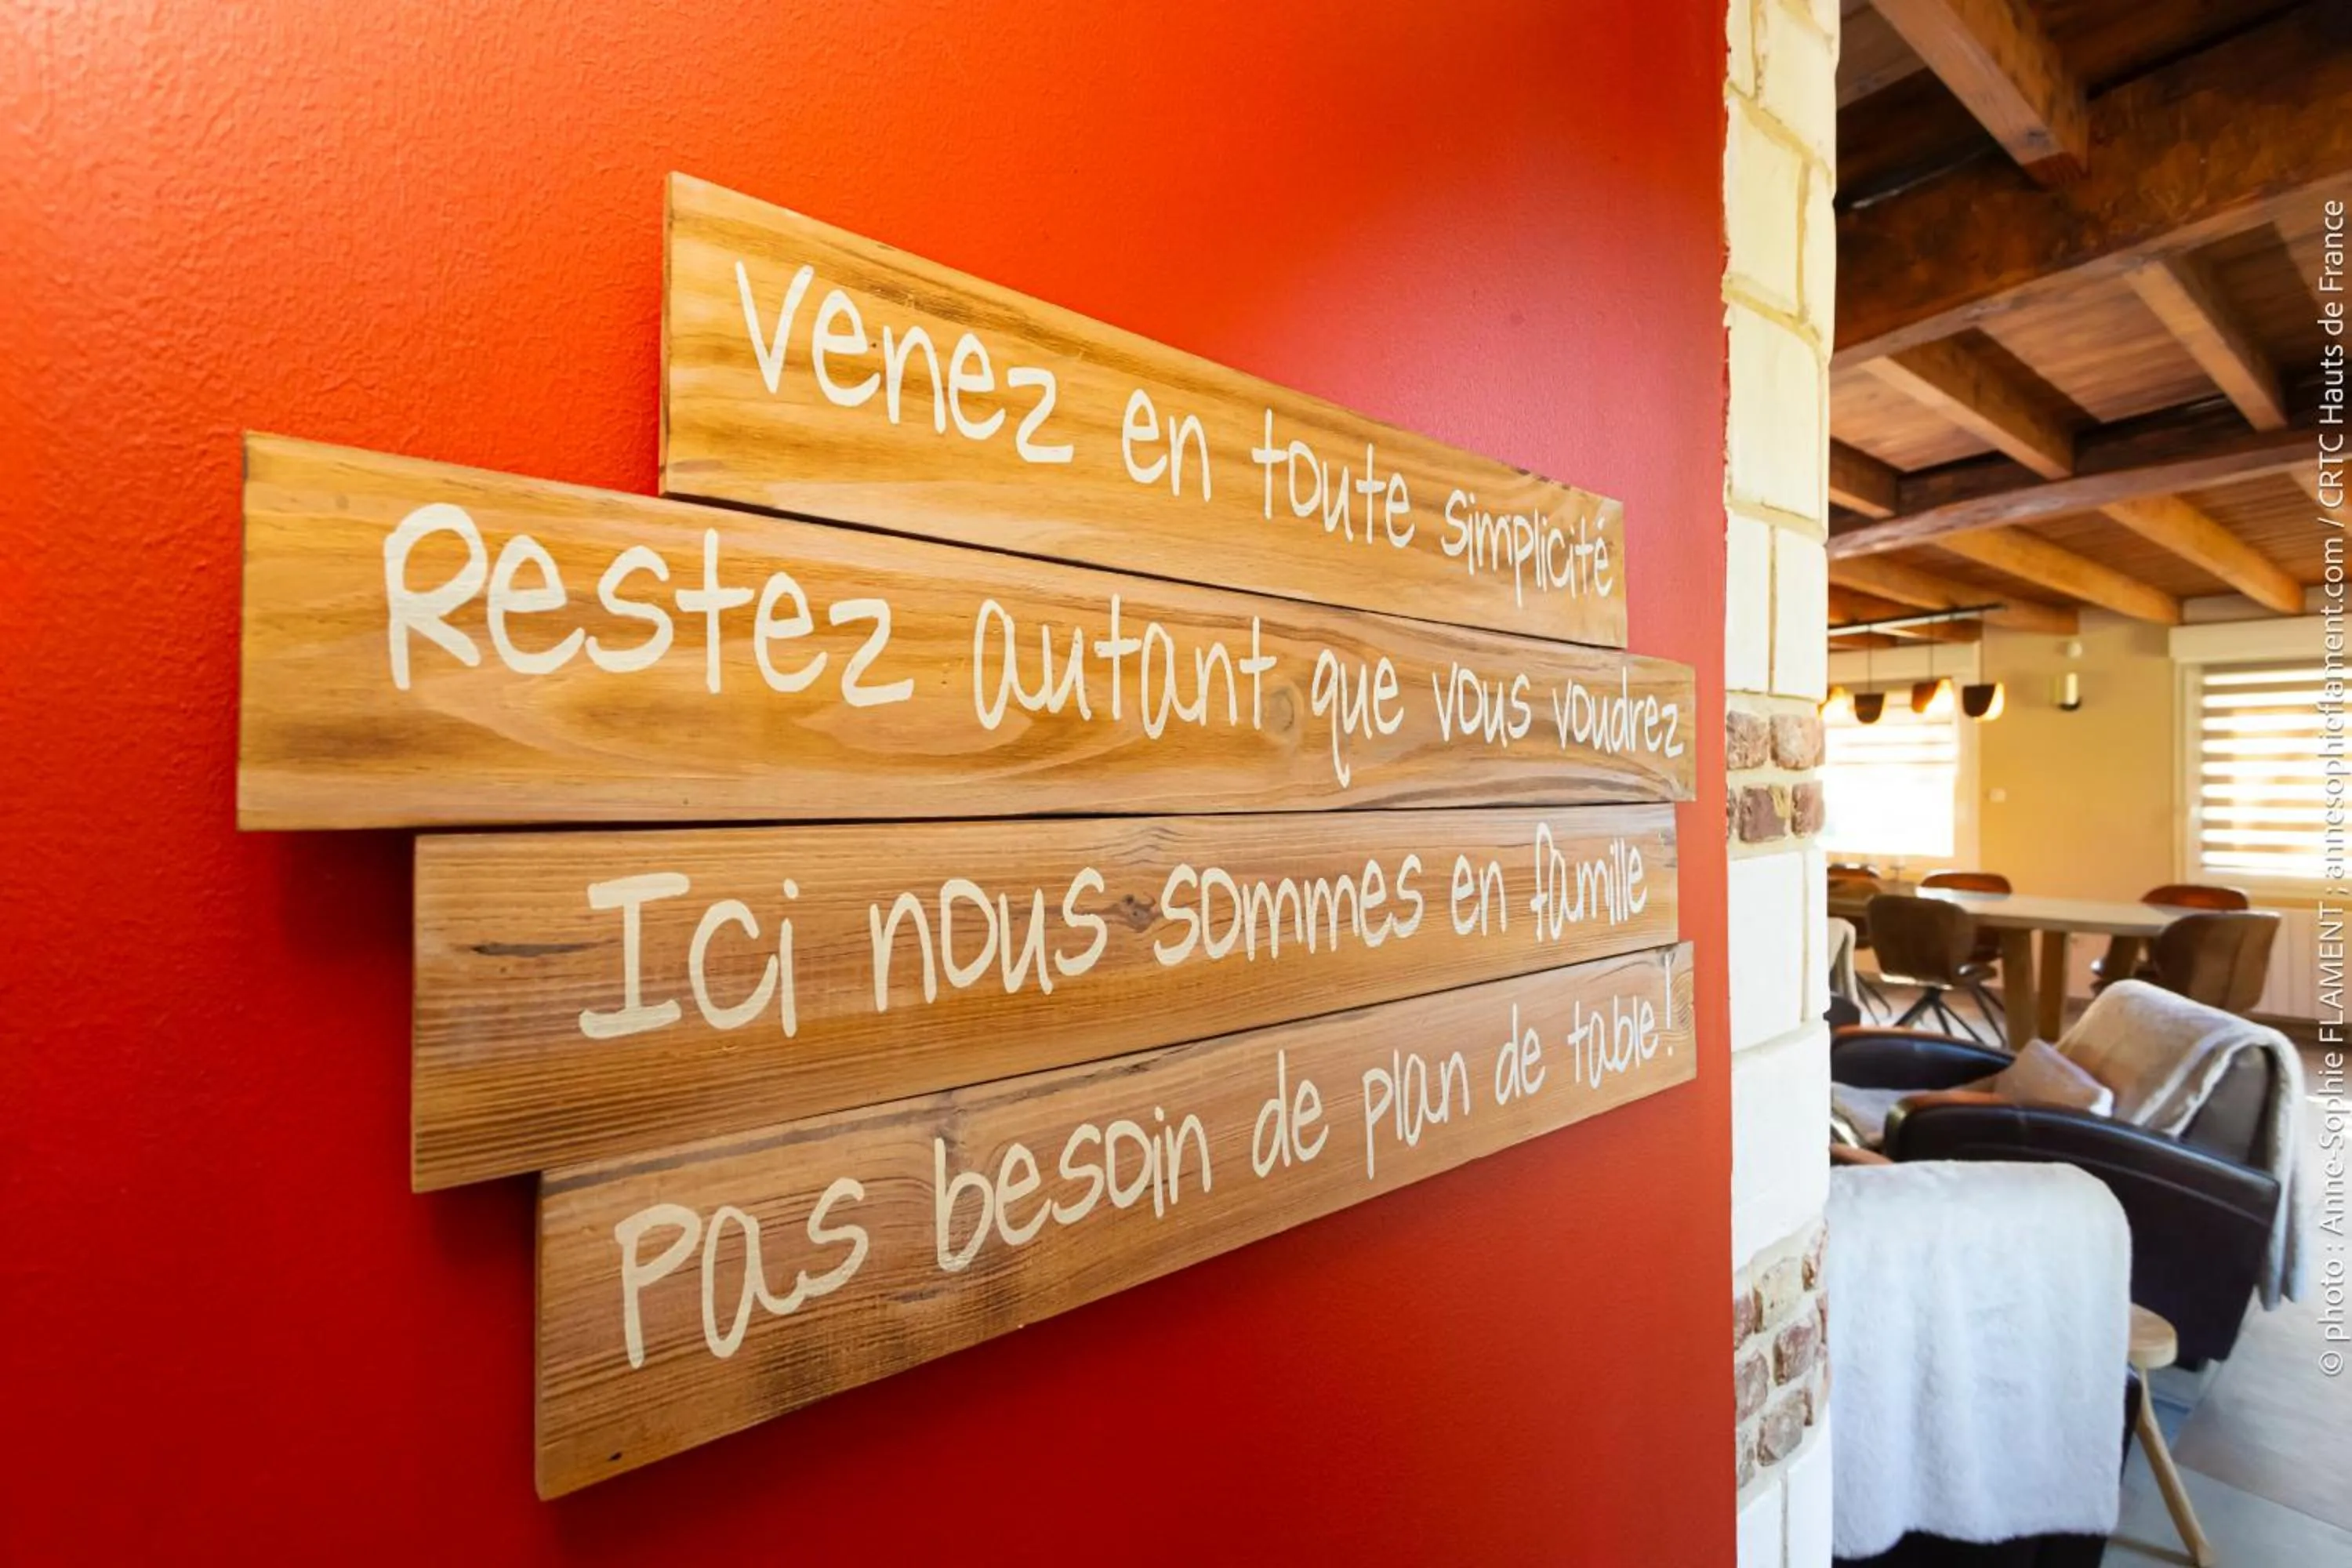 Venez en toute simplicité
Restez autant que vous voudrez
Ici nous sommes en famille
Pas besoin de plan de table!
© photo : Anne-Sophie FLAMENT ; annesophieflament.com / CRTC Hauts de France